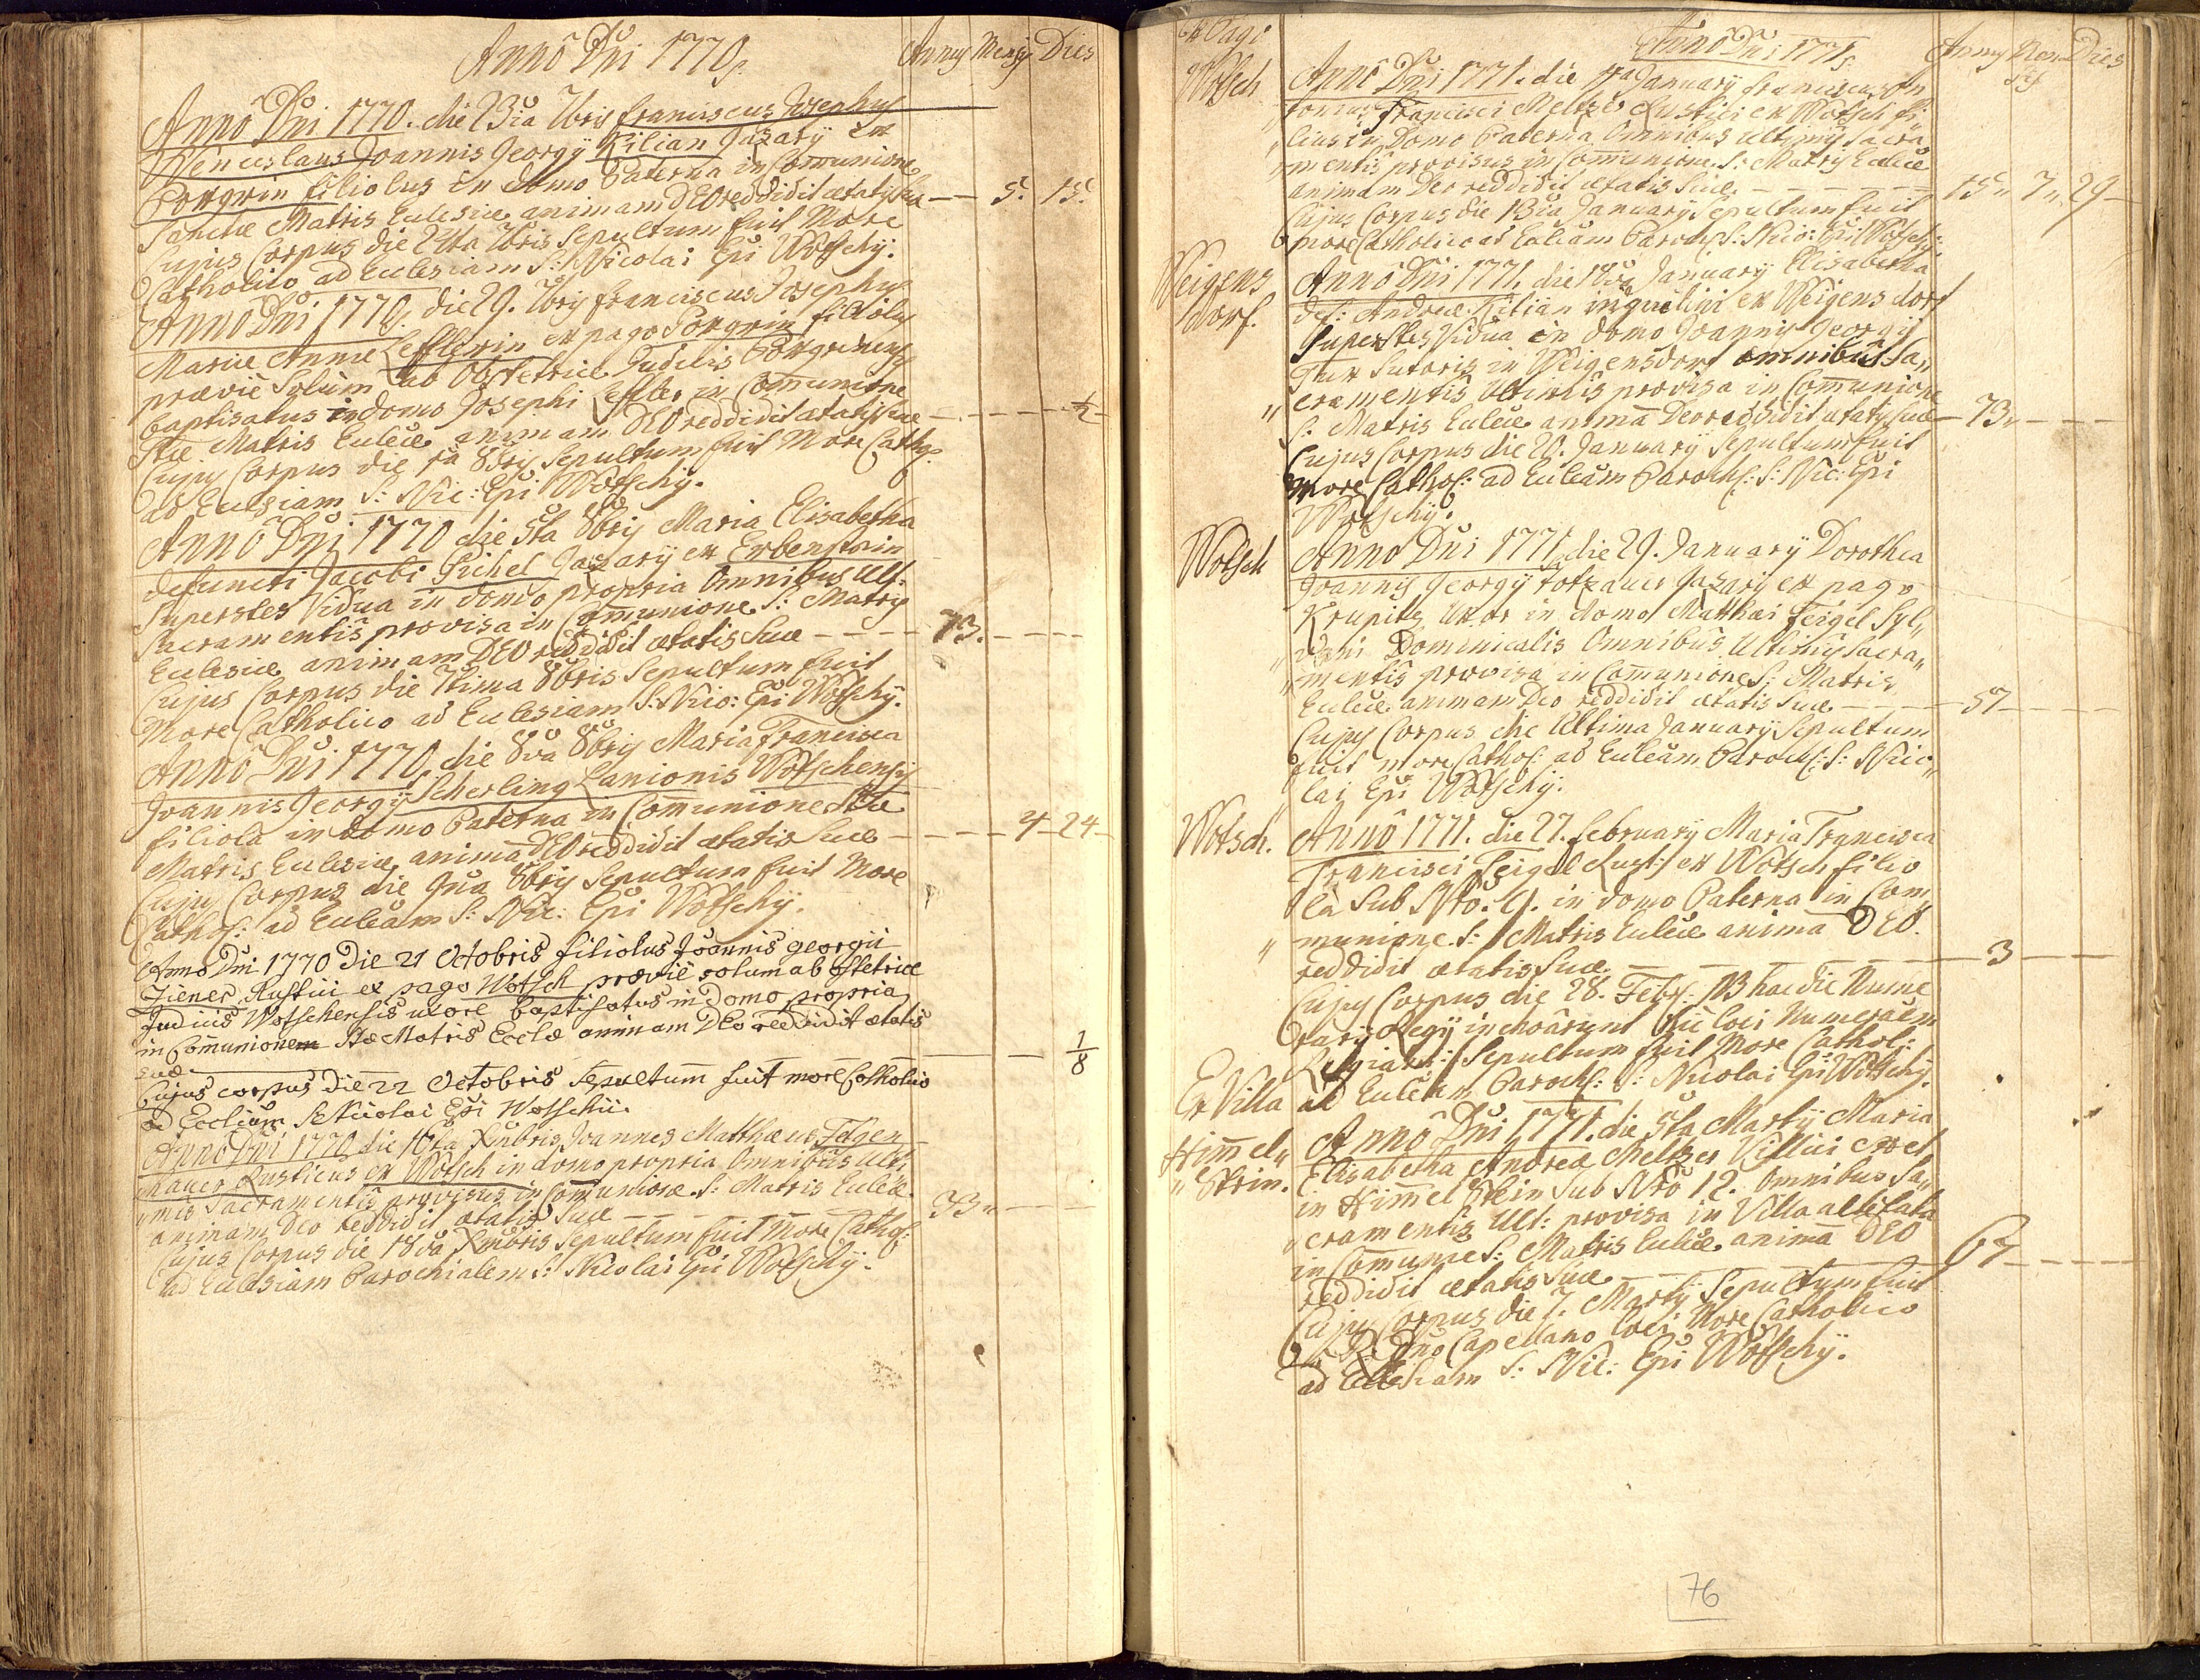 Anno Dni 1770.
Annus Mensis Dies
Anno Dni 1770. die 23ia 7bris Franciscus Josephus
Wenceslaus Joannis Georgÿ Kilian Jazarÿ ex
Pokgrin filiolus in domo Paterna in Comunione
Sanctæ Matris Eulesiæ animam DEO reddidit ætatis suæ — 5. 15.
Cujus Corpus die 24ta 7bris Sepultum fuit More
Catholico ad Eulesiam S: Nicolai Epi Wotschÿ.
Anno Dni 1770. die 29. 7bris Franciscus Josephus
Mariæ Annæ Lefflerin ex pago Pokgrin filiolus
prævie Solum ab Obstetrice Judicis Pokgrinensis
baptisatus in domo Josephi Leffler in Comunione
Stæ Matris Euleiæ animam DEO reddidit ætatis suæ — ½
Cujus Corpus die 1a 8bris Sepultum fuit More Catho:
ad Eulsiam S: Nic: Epi Wotschÿ.
Anno Dni 1770 die 5ta 8bris Maria Elisabetha
defuncti Jacobi Pichel Jazarÿ ex Erbenstein
Superstes Vidua in domo propria Omnibus Ult:
Sacramentis provisa in Comunione S: Matris
Eulesiæ animam DEO reddidit ætatis Suæ — 73.
Cujus Corpus die 7tima 8bris Sepultum fuit
More Catholico ad Eulesiam S: Nico: Epi Wotschÿ.
Anno Dni 1770. die 8va 8bris Maria Francisca
Joannis Georgÿ Scherling Lanionis Wotschensis
filiola in domo Paterna in Comunione Stæ
Matris Eulesiæ anima DEO reddidit ætatis Suæ — 4 — 24
Cujus Corpus die 9na 8bris Sepultum fuit More
Cathol: ad Euleam S: Nic: Epi Wotschÿ.
Anno Dni 1770 die 21 Octobris filiolus Joannis georgii
Ziener Rustici ex pago Wotsch prævie solum ab obstetrice
Judicis Wotschensis uxore baptisatus in domo propria
in Comunionem Stæ Matris Ecclæ animam DEO reddidit ætatis
suæ — 1/8
Cujus corpus die 22 Octobris Sepultum fuit more Catholico
ad Eccliam S: Nicolai Epi Wotschii.
Anno Dni 1770 die 16ta Xmbris Joannes Matthæus
mauer Rusticus ex Wotsch in domo propria Omnibus Ulti
mis Sacramentis provisus in Comunione S: Matris Euleiæ
animam Deo reddidit ætatis Suæ — 33
Cujus Corpus die 18va Xmbris Sepultum fuit More Cathol:
ad Eulesiam Parochialem S: Nicolai Epi Wotschÿ.
Ex Pago
Anno Dni 1771.
Annus Men sis Dies
Wotsch
Anno Dni 1771. die 11ma Januarÿ Franciscus An
tonius Francisci Meltzer Rustici ex Wotsch fi„
„lius in Domo Paterna Omnibus ultimis Sacra
„mentis provisus in Comunione S: Matris Euleiæ
animam Deo reddidit ætatis Suæ — 15„ 7„ 29
Cujus Corpus die 13tia Januarÿ Sepultum fuit
more Catholico ad Euleam Paroch: S: Nico: Epi Wotschÿ:
Weigens
dorf.
Anno Dni 1771. die 18va Januarÿ Elisabetha
def: Andreæ Kilian inquilini ex Weigensdorf
Superstes Vidua in domo Joannis Georgÿ
Sutoris in Weigensdorf omnibus Sa„
„cramentis Ultimis provisa in Comunione
S: Matris Euleiæ anima Deo reddidit ætatis Suæ — 73„
Cujus Corpus die 20. Januarÿ Sepultum fuit
More Cathol: ad Euleam Paroch: S: Nic: Epi
Wotschÿ.
Wotsch
Anno Dni 1771. die 29. Januarÿ Dorothea
Joannis Georgÿ Totzauer Jazarÿ ex pago
Krupitz Uxor in domo Matthæi Feigel Syl„
„vani Dominicalis Omnibus Ultimis Sacra„
„mentis provisa in Comunione S: Matris
Euleiæ animam Deo reddidit ætatis Suæ — 57
Cujus Corpus die Ultima Januarÿ Sepultum
fuit more Cathol: ad Euleam Paroch: S: Nico„
lai Epi Wotschÿ.
Wotsch.
Anno 1771. die 27. Februarÿ Maria Francisca
Francisci Feigel Rust: ex Wotsch filio
la Sub Nro. 9. in domo Paterna in Com„
„munione S: Matris Euleiæ anima DEO
reddidit ætatis Suæ — 3
Cujus Corpus die 28. Feby. NB hac die Nume
rarÿ Regÿ inchoarunt hic loci Numeraem
Sepultum fuit More Cathol:
ad Euleam Paroch: S: Nicolai Epi Wotschÿ.
Ex Villa
Himel„
„Stein.
Anno Dni 1771. die 5ta Martÿ Maria
Elisabetha Andreæ Meltzer Villici
in Himmelstein Sub Nro 12. Omnibus Sa„
„cramentis Ult: provisa in Villa
in Comunione S: Matris Euleiæ anima DEO
reddidit ætatis Suæ — 67
Cujus Corpus die 7. Martÿ Sepultum fuit
a R. Dno Capellano loci More Catholico
ad Eulesiam S: Nic: Epi Wotschÿ.
76